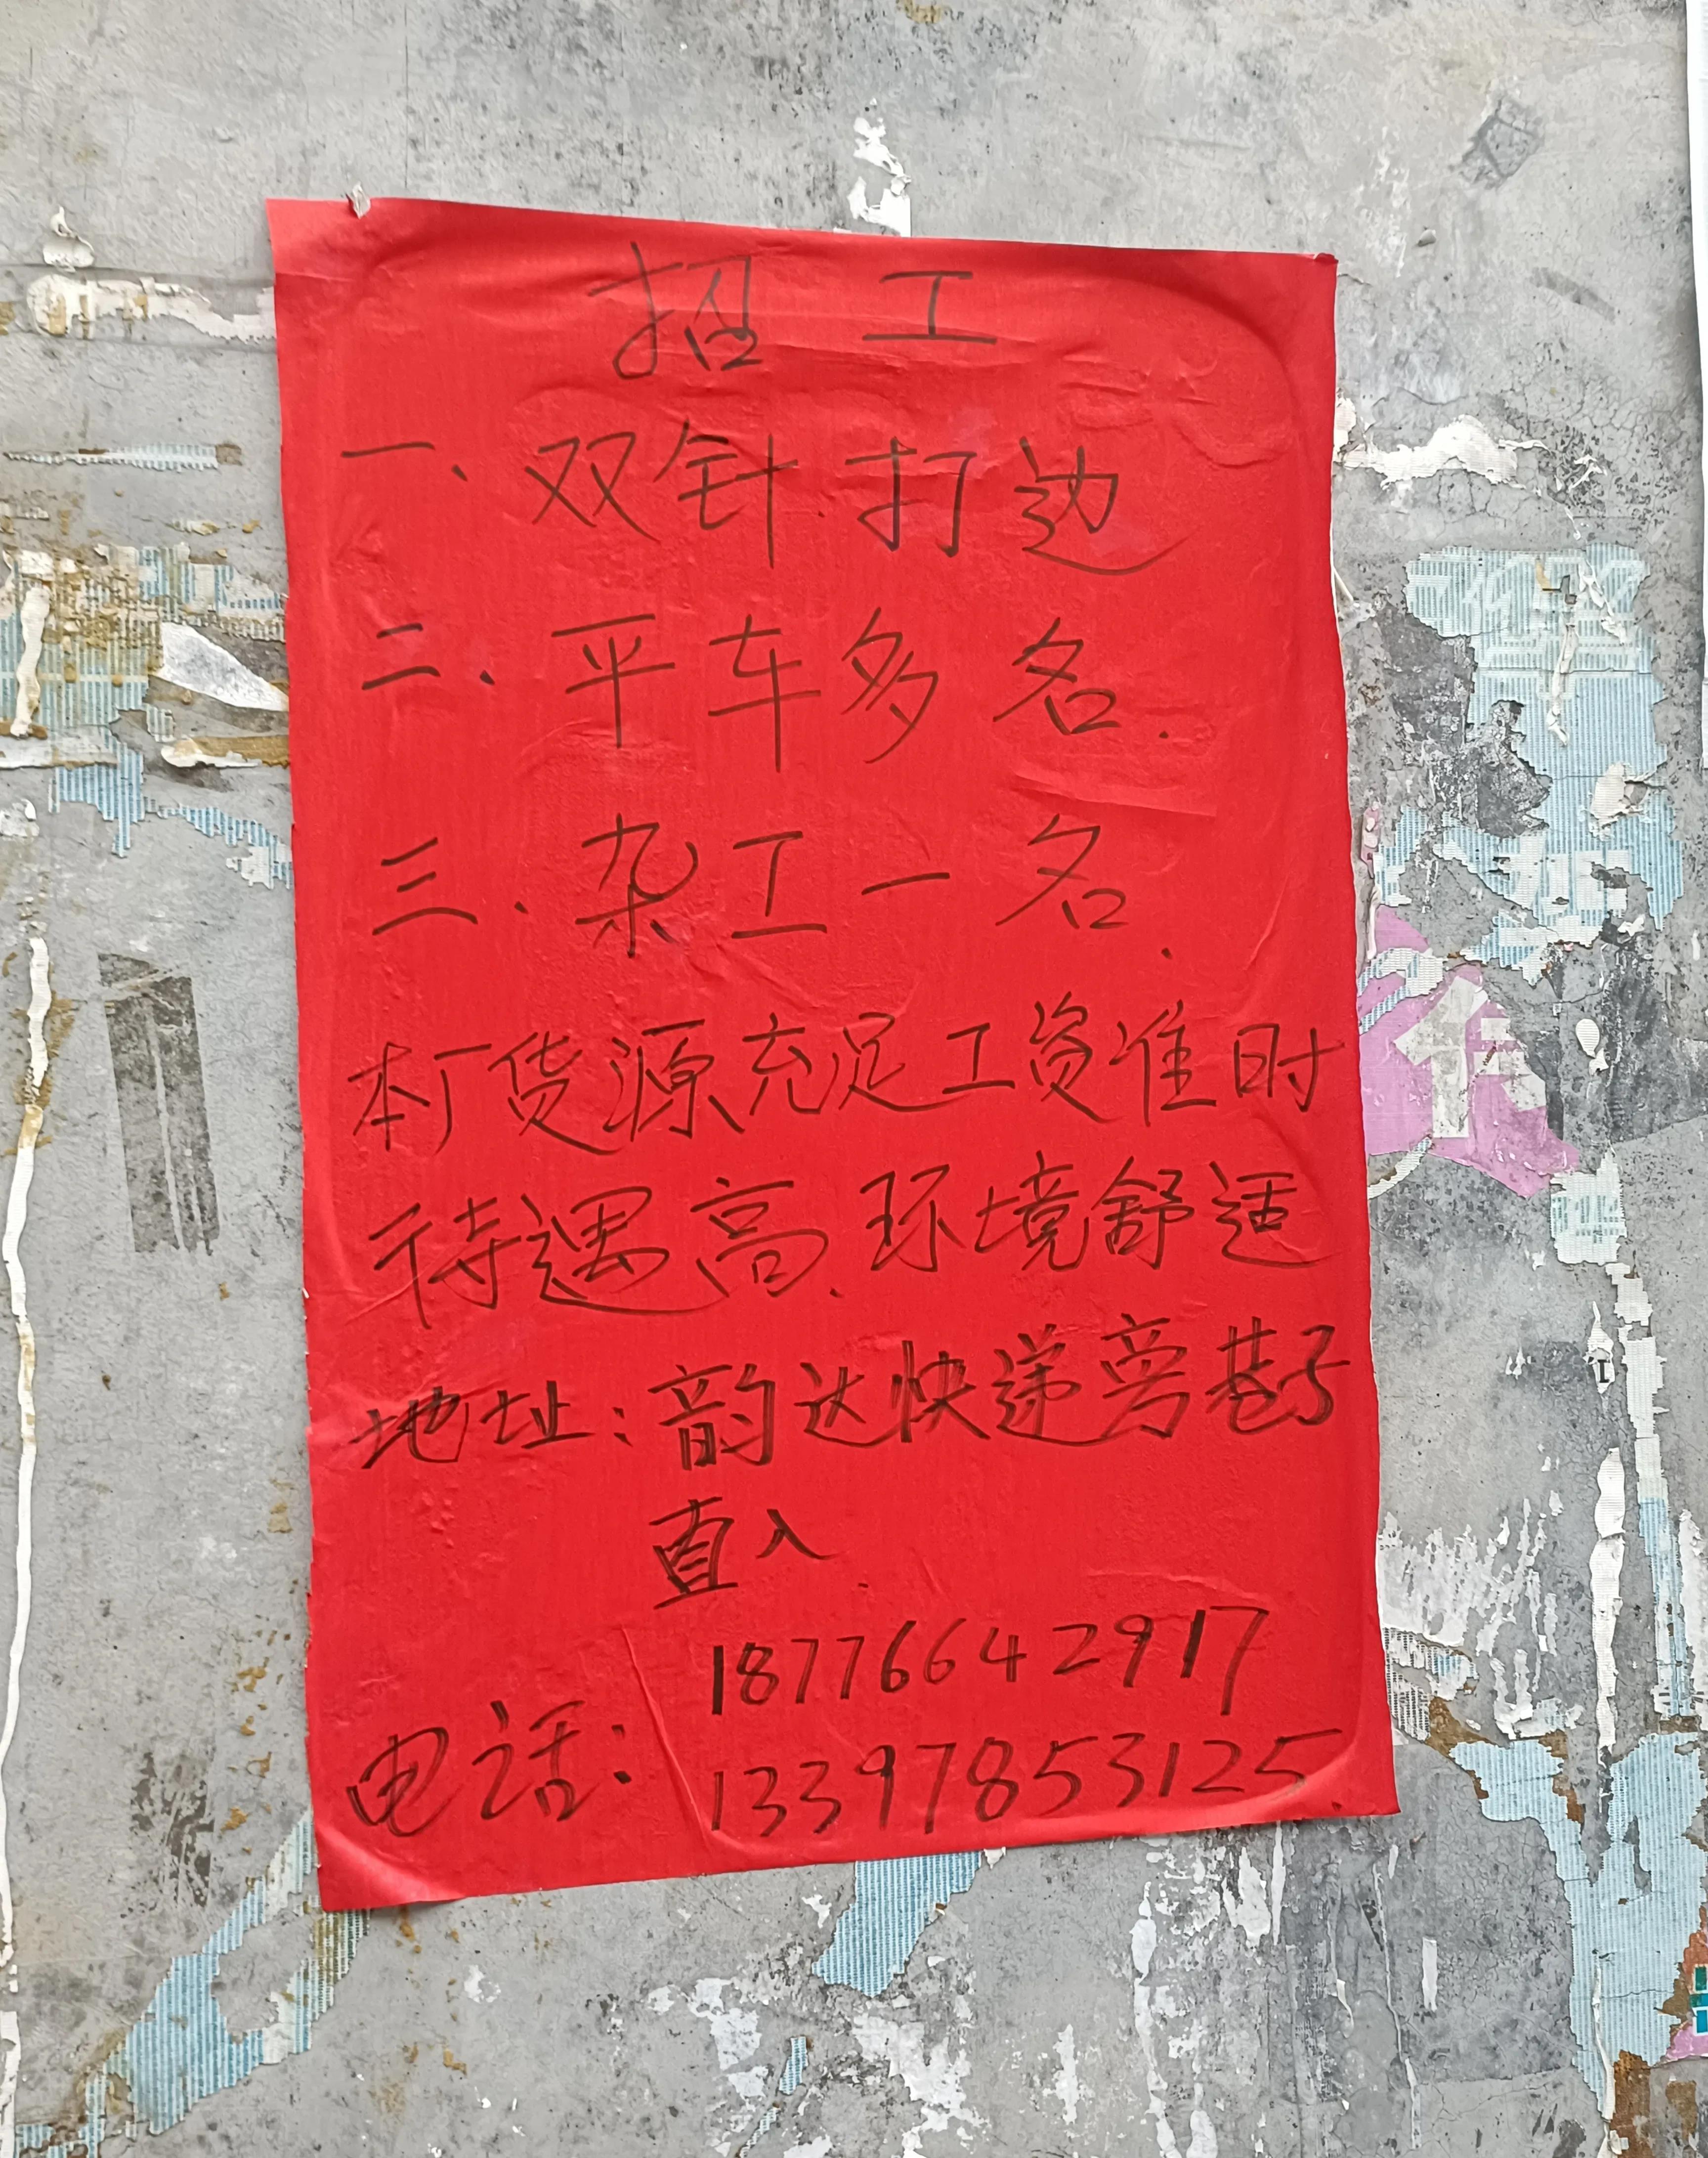 招工
一、双针打边
二、平车多名.
三、杂工一名.
本厂货源充足工资准时
待遇高.环境舒适
地址:韵达快递旁巷子
直入.
18776642917
电话:
13397853125.